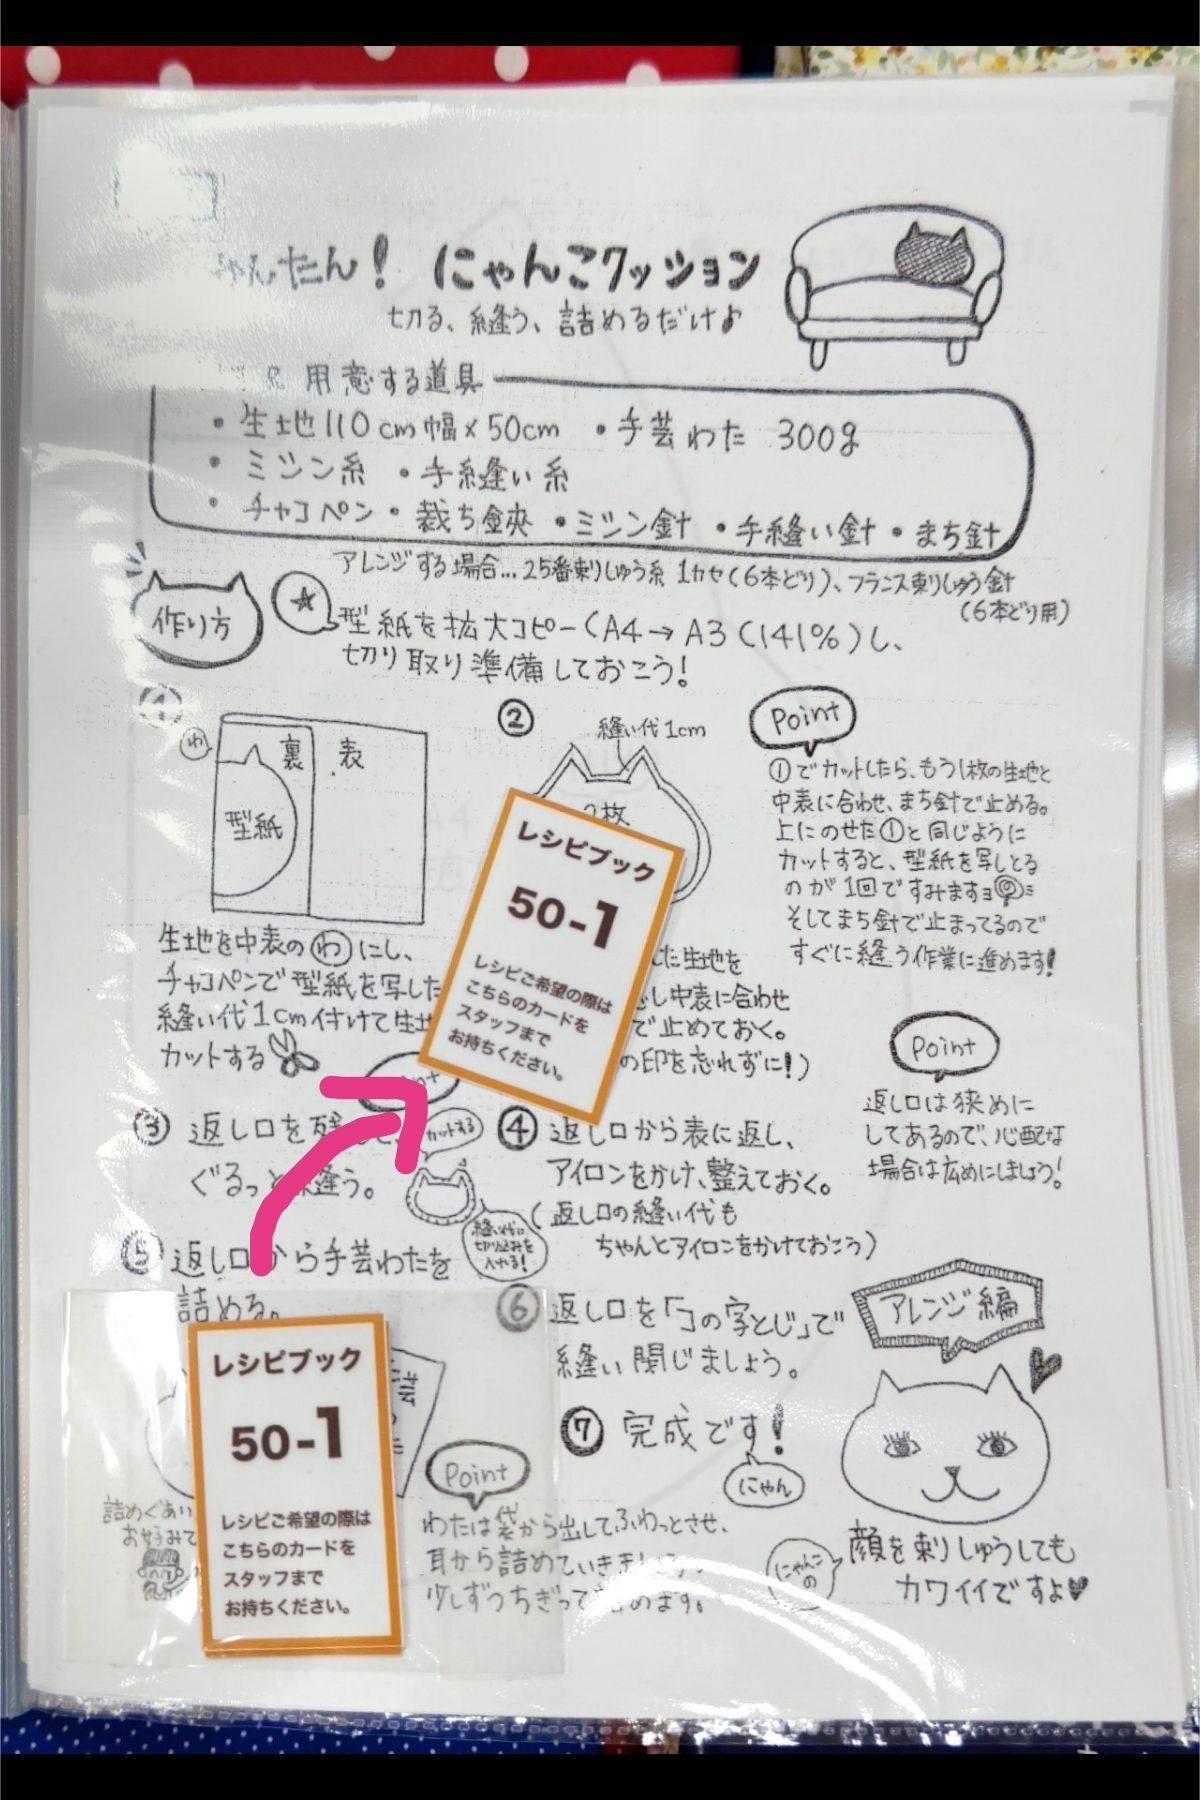 かんたん！ にゃんこクッション
切る、縫う、詰めるだけよ
用意する道具
・生地110cm幅×50cm ・手芸わた 300g
・ミシン糸 ・手縫い糸
・チャコペン・裁ち鋏 ・ミシン針 ・手縫い針・まち針
アレンジする場合…25番刺しゅう糸 1カセ(6本どり)、フランス刺しゅう針
(6本どり用)
作り方
☆
型紙を拡大コピー(A4→A3(141%)し、
切り取り準備しておこう！
①
わ
裏 表
型紙
生地を中表の(わ)にし、
チャコペンで型紙を写した
縫い代1cm付けて生地
カットする
②
縫い代1cm
2枚
した生地を
し中表に合わせ
で止めておく。
の印を忘れずに！)
Point
①でカットしたら、もう1枚の生地と
中表に合わせ、まち針で止める。
上にのせた①と同じように
カットすると、型紙を写しとる
のが1回ですみますヨ
そしてまち針で止まってるので
すぐに縫う作業に進めます！
レシピブック
50-1
レシピご希望の際は
こちらのカードを
スタッフまで
お持ちください。
③ 返し口を残して、
ぐるっと縫う。
カットする
縫い代に
切り込みを
入れる！
④ 返し口から表に返し、
アイロンをかけ、整えておく。
(返し口の縫い代も
ちゃんとアイロンをかけておこう)
Point
返し口は狭めに
してあるので、心配な
場合は広めにしましょう！
⑤ 返し口から手芸わたを
詰める。
詰めぐあい
お好みで
レシピブック
50-1
レシピご希望の際は
こちらのカードを
スタッフまで
お持ちください。
Point
わたは袋から出してふわっとさせ、
耳から詰めていきましょう。
少しずつちぎって詰めます。
⑥ 返し口を「コの字とじ」で
縫い閉じましょう。
⑦ 完成です！
にゃん
アレンジ編
にゃんこ
の
顔を刺しゅうしても
カワイイですよ♥